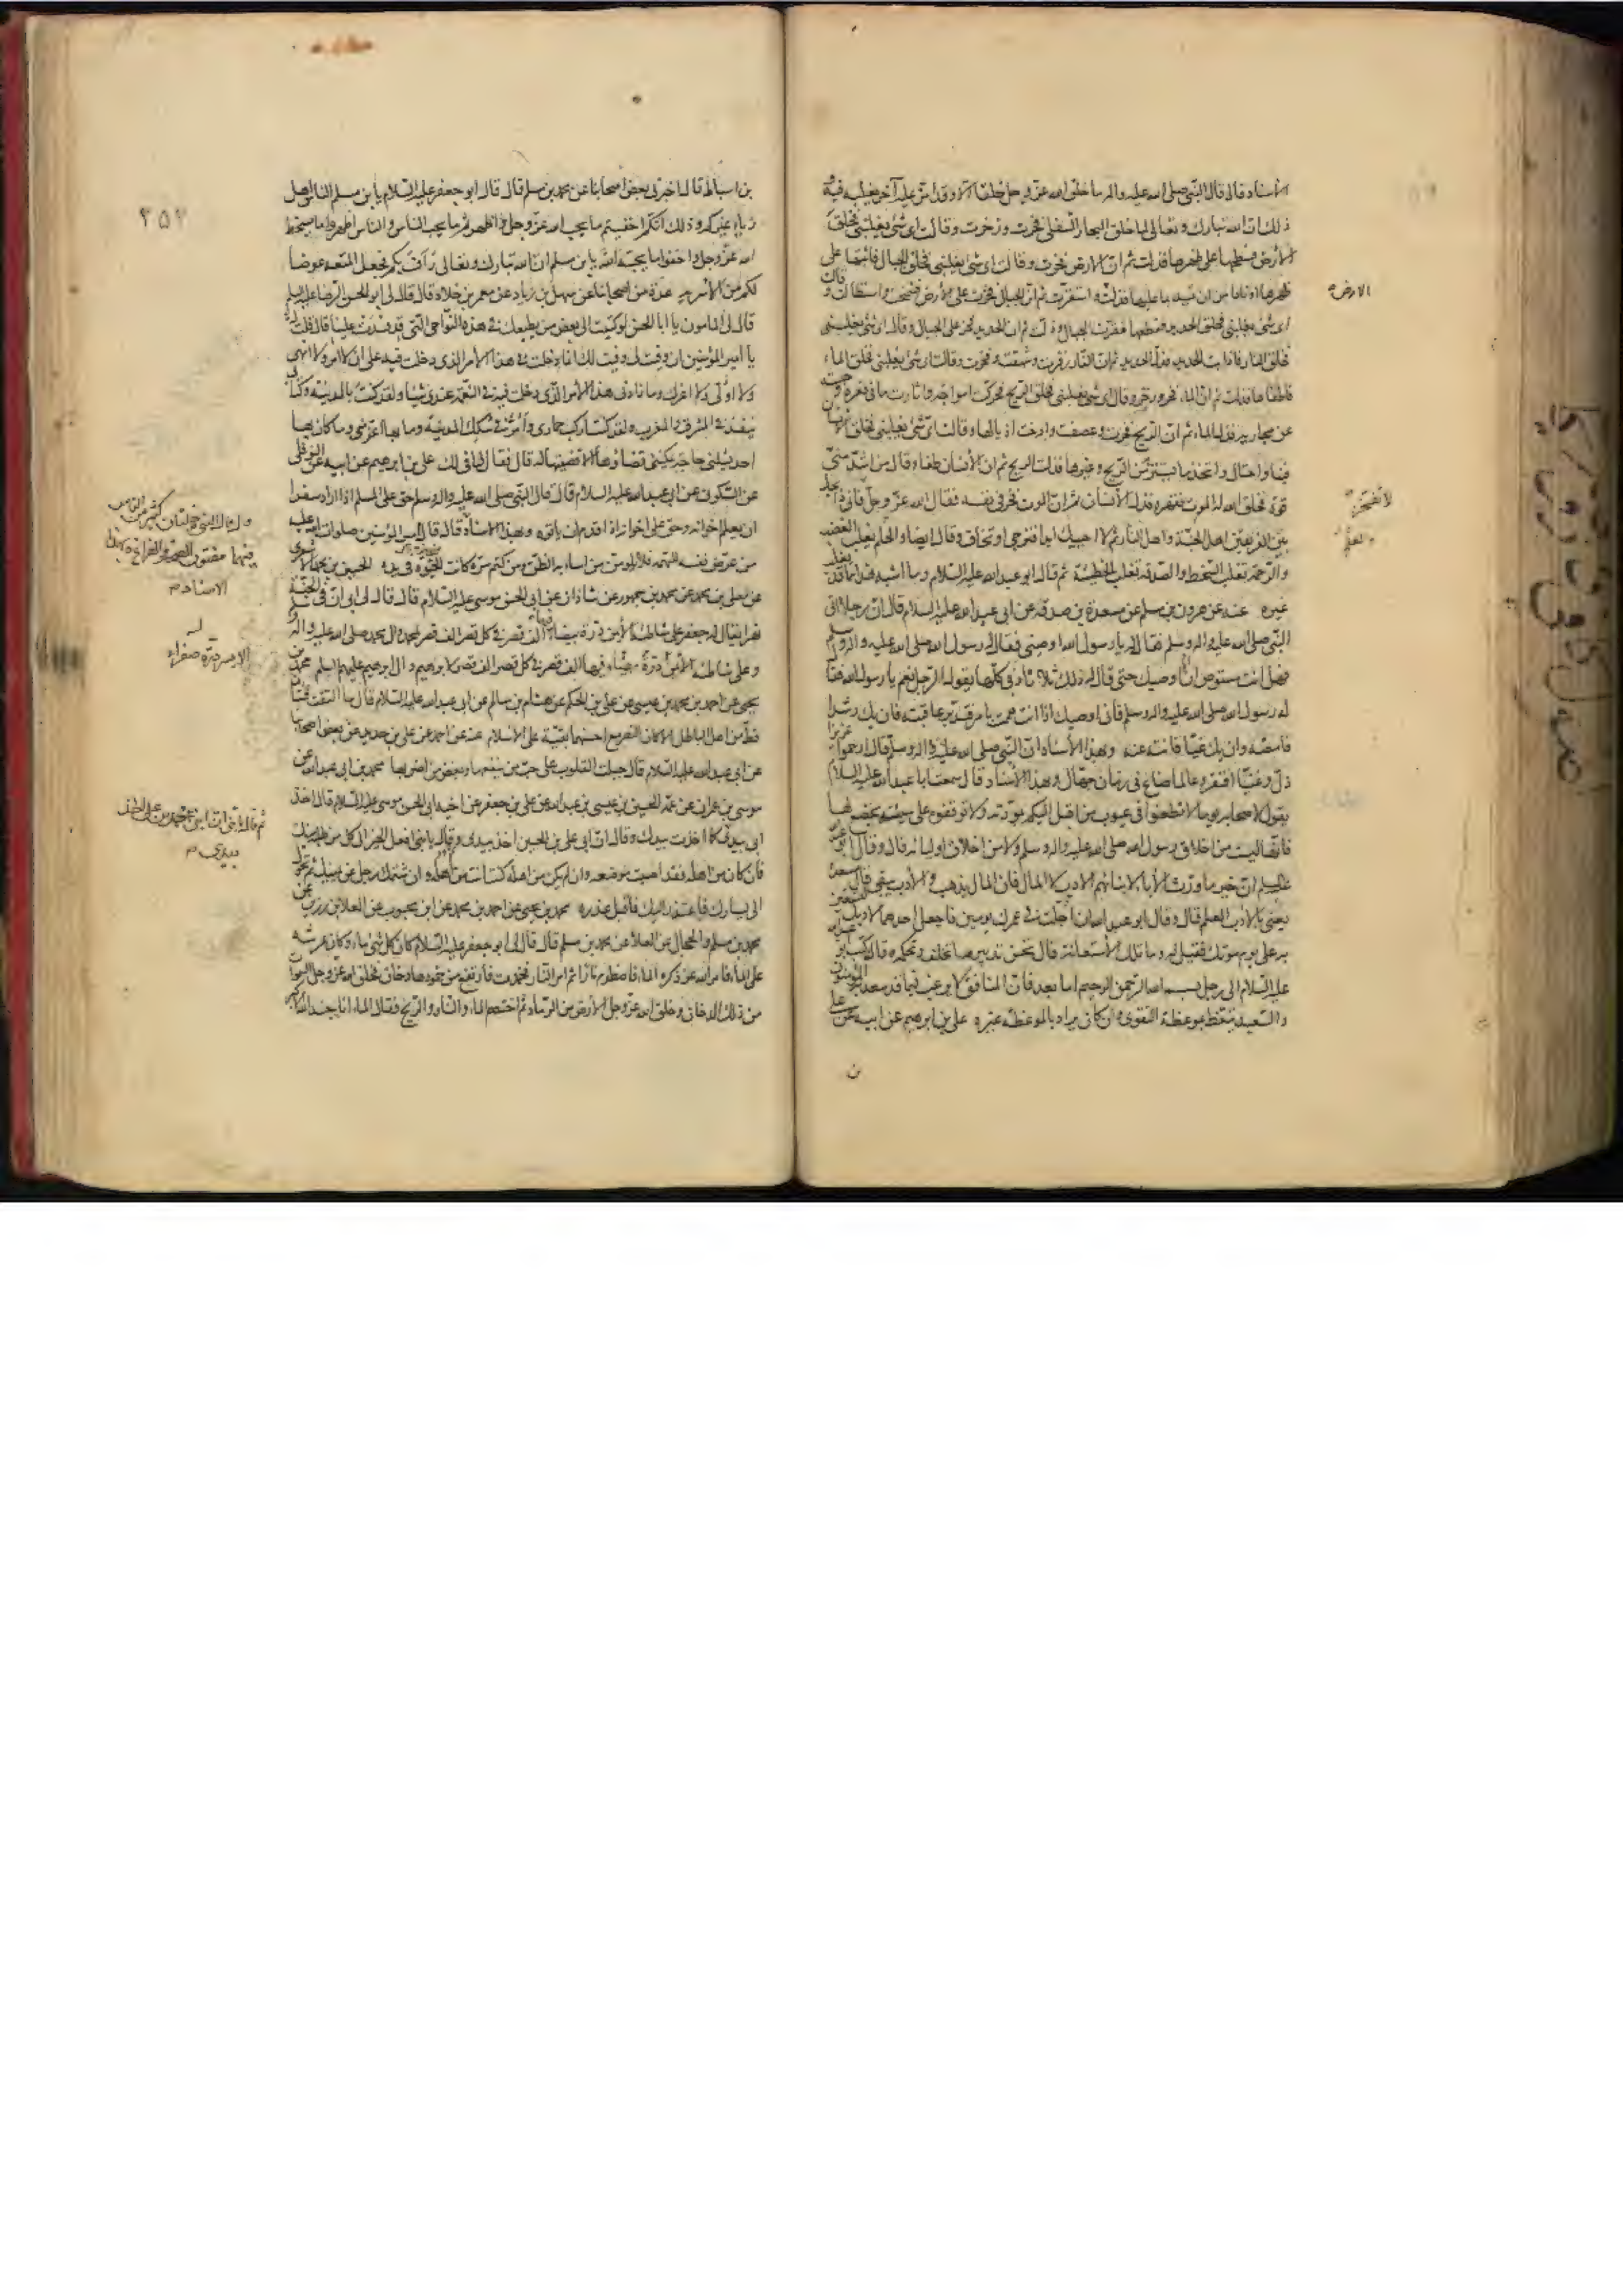 الأسناد قال قال النبي صلى الله عليه واله ما خلق الله عز وجل خلقا الا وقد امر عليه آخر يغلبه فيه و
ذلك ان الله تبارك وتعالى لما خلق البحار السفلى فخرت وزخرت وقالت اي شئ يغلبني فخلق
الأرض فسطحها على ظهرها فذلت ثم ان الارض فخرت وقالت اي شئ يغلبني فخلق الجبال فاثبتها على
ظهرها اوتادا من ان تميد بما عليها فذلت واستقرت ثم ان الجبال فخرت على الأرض فشمخت واستطالت وقالت
اي شئ يغلبني فخلق الحديد فقطعها فقرت الجبال وذلت ثم ان الحديد فخر على الجبال وقال اي شئ يغلبني
فخلق النار فاذابت الحديد فذل الحديد ثم ان النار زفرت وشهقت وفخرت وقالت اي شئ يغلبني فخلق الماء
فاطفاها فذلت ثم ان الماء فخر وزخر وقال اي شئ يغلبني فخلق الريح فحركت امواجه واثارت ما في قعره وحبسته
عن مجاريه فذل الماء ثم ان الريح فخرت وعصفت وارخت اذيالها وقالت اي شئ يغلبني فخلق الانسان
فبنا واحتال واتخذ ما يستتر من الريح وغيرها فذلت الريح ثم ان الأنسان طغا وقال من اشد مني
قوة فخلق الله له الموت فقهره فذل الأنسان ثم ان الموت فخر في نفسه فقال الله عز وجل
بين الفريقين اهل الجنة واهل النار ثم لا احييك ابدا فترجى او تخاف وقال ايضا والحلم يغلب الغضب
والرحمة تغلب السخط والصدقة تغلب الخطيئة ثم قال ابو عبد الله عليه السلام وما اشبه هذا مما قد يغلب
غيره عنه عن هرون بن مسلم عن مسعدة بن صدقة عن ابي عبد الله عليه السلام قال ان رجلا اتى
النبي صلى الله عليه واله وسلم فقال له يا رسول الله اوصني فقال له رسول الله صلى الله عليه واله وسلم
فهل انت مستوص ان اوصيك حتى قال له ذلك ثلاثا وفي كلها يقول له الرجل نعم يا رسول الله فقال
له رسول الله صلى الله عليه واله وسلم فاني اوصيك اذا انت هممت بامر فتدبر عاقبته فان يك رشدا
فامضه وان يك غيا فانته عنه وبهذا الأسناد ان النبي صلى الله عليه واله وسلم قال ارحموا عزيزا
ذل وغنيا افتقر وعالما ضاع في زمان جهال وبهذا الأسناد قال سمعت ابا عبد الله عليه السلام
يقول لاصحابه يوما لا تطعنوا في عيوب من اقبل اليكم بمودته ولا توقفوه على سيئة يخضع لها
فانها ليست من اخلاق رسول الله صلى الله عليه واله وسلم ولا من اخلاق اوليائه قال وقال ابو عبد الله
عليه السلام ان خير ما ورث الآباء لابنائهم الادب لا المال فان المال يذهب والأدب يبقى قال مسعدة
يعني بالأدب العلم قال وقال ابو عبد الله ان اجلت في عمرك يومين فاجعل احدهما لادبك لتستعين
به على يوم موتك فقيل له وما تلك الاستعانة قال تحسن تدبير ما تخلف وتحكمه قال وكتب ابو عبد الله
عليه السلام الى رجل بسم الله الرحمن الرحيم اما بعد فان المنافق لا يرغب فيما قد سعد به المؤمنون
والسعيد يتعظ بموعظة التقوى وان كان يراد بالموعظة غيره علي بن ابراهيم عن ابيه عن علي
ن
الارض
لا تفخر
٢٥٢
بن اسباط قال اخبرني بعض اصحابنا عن محمد بن مسلم قال قال ابو جعفر عليه السلام يا بن مسلم الناس اهل
رياء غيركم وذلك انكم اخفيتم ما يحب الله عز وجل واظهرتم ما يحب الناس والناس اظهروا ما يسخط
الله عز وجل واخفوا ما يحبه الله يا بن مسلم ان الله تبارك وتعالى رأف بكم فجعل المتعة عوضا
لكم من الأشربه عدة من اصحابنا عن سهل بن زياد عن معمر بن خلاد قال قال لي ابو الحسن الرضا عليه السلم
قال لي المامون يا ابا الحسن لو كتبت الى بعض من يطيعك في هذه النواحي التي قد فسدت علينا قال قلت له
يا امير المؤمنين ان وفيت لي وفيت لك انما دخلت في هذا الامر الذي دخلت فيه على ان لا امر ولا انهى
ولا اولى ولا اعزل وما زادني هذا الأمر الذي دخلت فيه في النعمة عندي شيئا ولقد كنت بالمدينة وكتابي
ينفذ في المشرق والمغرب ولقد كنت اركب حماري وامر في سكك المدينة وما بها اعز مني وما كان بها
احد يسئلني حاجة يمكنني قضاؤها الا قضيتها له قال فقال لي افي لك علي بن ابراهيم عن ابيه عن النوفلي
عن السكوني عن ابي عبد الله عليه السلام قال قال النبي صلى الله عليه واله وسلم حق على المسلم اذا اراد سفرا
ان يعلم اخوانه وحق على اخوانه اذا قدم ان ياتوه وبهذا الاسناد قال قال امير المؤمنين صلوات الله عليه
من عرض نفسه للتهمة فلا يلومن من اساء به الظن ومن كتم سره كانت الخيرة في يده الحسين بن محمد الاشعري
عن معلى بن محمد عن محمد بن جمهور عن شاذان عن ابي الحسن موسى عليه السلام قال قال لي ابي ان في الجنة
نهرا يقال له جعفر على شاطئه الأيمن درة بيضاء فيها الف قصر في كل قصر الف قصر لمحمد وال محمد صلى الله عليه واله
وعلى شاطئه الأيمن درة بيضاء فيها الف قصر في كل قصر الف قصر لابراهيم وال ابراهيم عليهم السلم محمد بن
يحيى عن احمد بن محمد بن عيسى عن علي بن الحكم عن هشام بن سالم عن ابي عبد الله عليه السلام قال ما التقت فئتان
قط من اهل الباطل الا كان النصر مع احسنهما بقية على الاسلام عنه عن احمد عن علي بن حديد عن بعض اصحابنا
عن ابي عبد الله عليه السلام قال جبلت القلوب على حب من ينفعها وبغض من اضر بها محمد بن ابي عبد الله عن
موسى بن عمران عن عمه الحسين بن عيسى بن عبد الله عن علي بن جعفر عن اخيه ابي الحسن موسى عليه السلام قال اخذ
ابي بيدي كما اخذت بيدك وقال ان ابي علي بن الحسين اخذ بيدي وقال يا بني افعل الخير الى كل من طلبه منك
فان كان من اهله فقد اصبت موضعه وان لم يكن من اهله كنت انت من اهله وان شتمك رجل عن يمينك ثم تحول
الى يسارك فاعتذر اليك فاقبل عذره محمد بن يحيى عن احمد بن محمد عن ابن محبوب عن العلا بن رزين عن
محمد بن مسلم والحجال عن العلا عن محمد بن مسلم قال قال لي ابو جعفر عليه السلام كان كل شئ ماء وكان عرشه
على الماء فامر الله عز ذكره الماء فاضطرم نارا ثم امر النار فخمدت فارتفع من خمودها دخان فخلق الله عز وجل السموات
من ذلك الدخان وخلق الله عز وجل الأرض من الرماد ثم اختصم الماء والنار والريح فقال الماء انا جند الله الاكبر
الاسناد م
الايسر درة صفراء